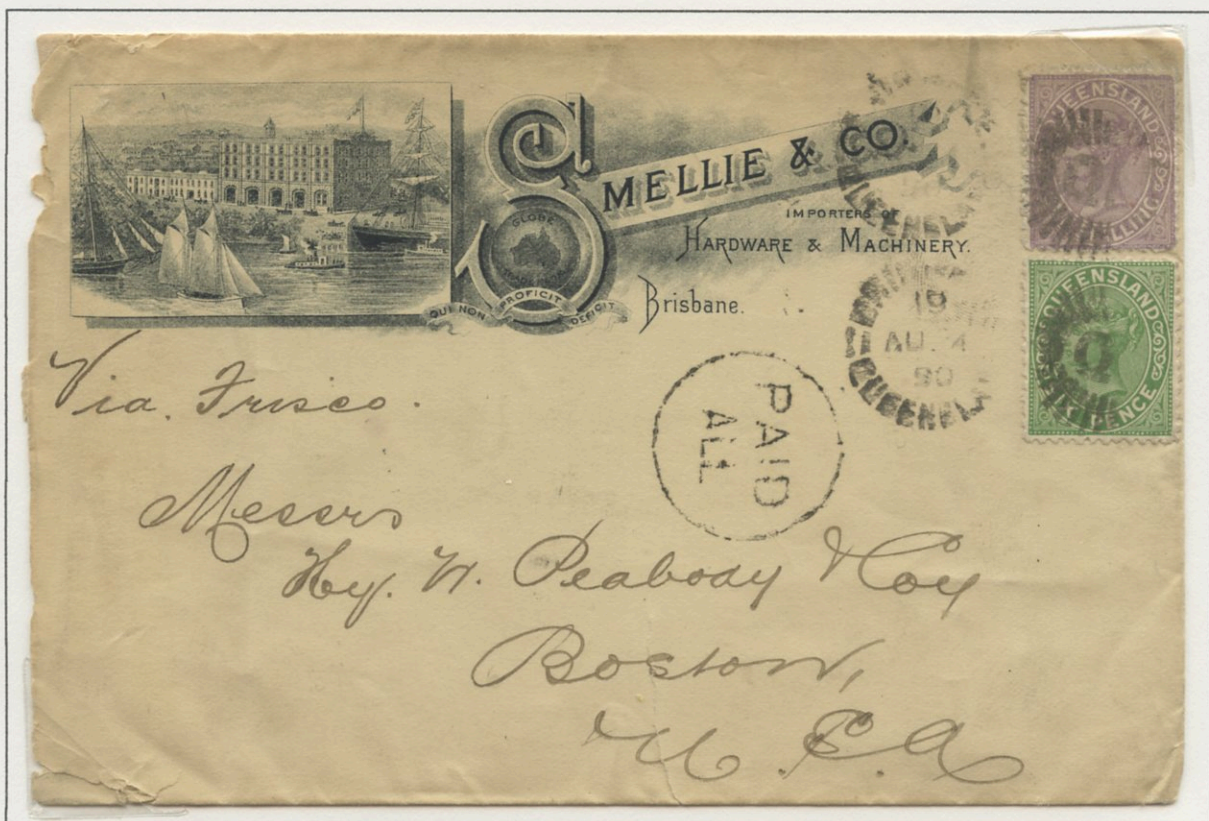 SMELLIE & CO.
IMPORTERS OF
HARDWARE & MACHINERY.
Brisbane.
GLOBE
QUI NON PROFICIT DEFICIT
QUEENSLAND
SHILLING
QUEENSLAND
SIX PENCE
19
AU
90
PAID
ALL
Via. Frisco.
Messrs
Hy. W. Peabody & Coy
Boston,
U.S.A